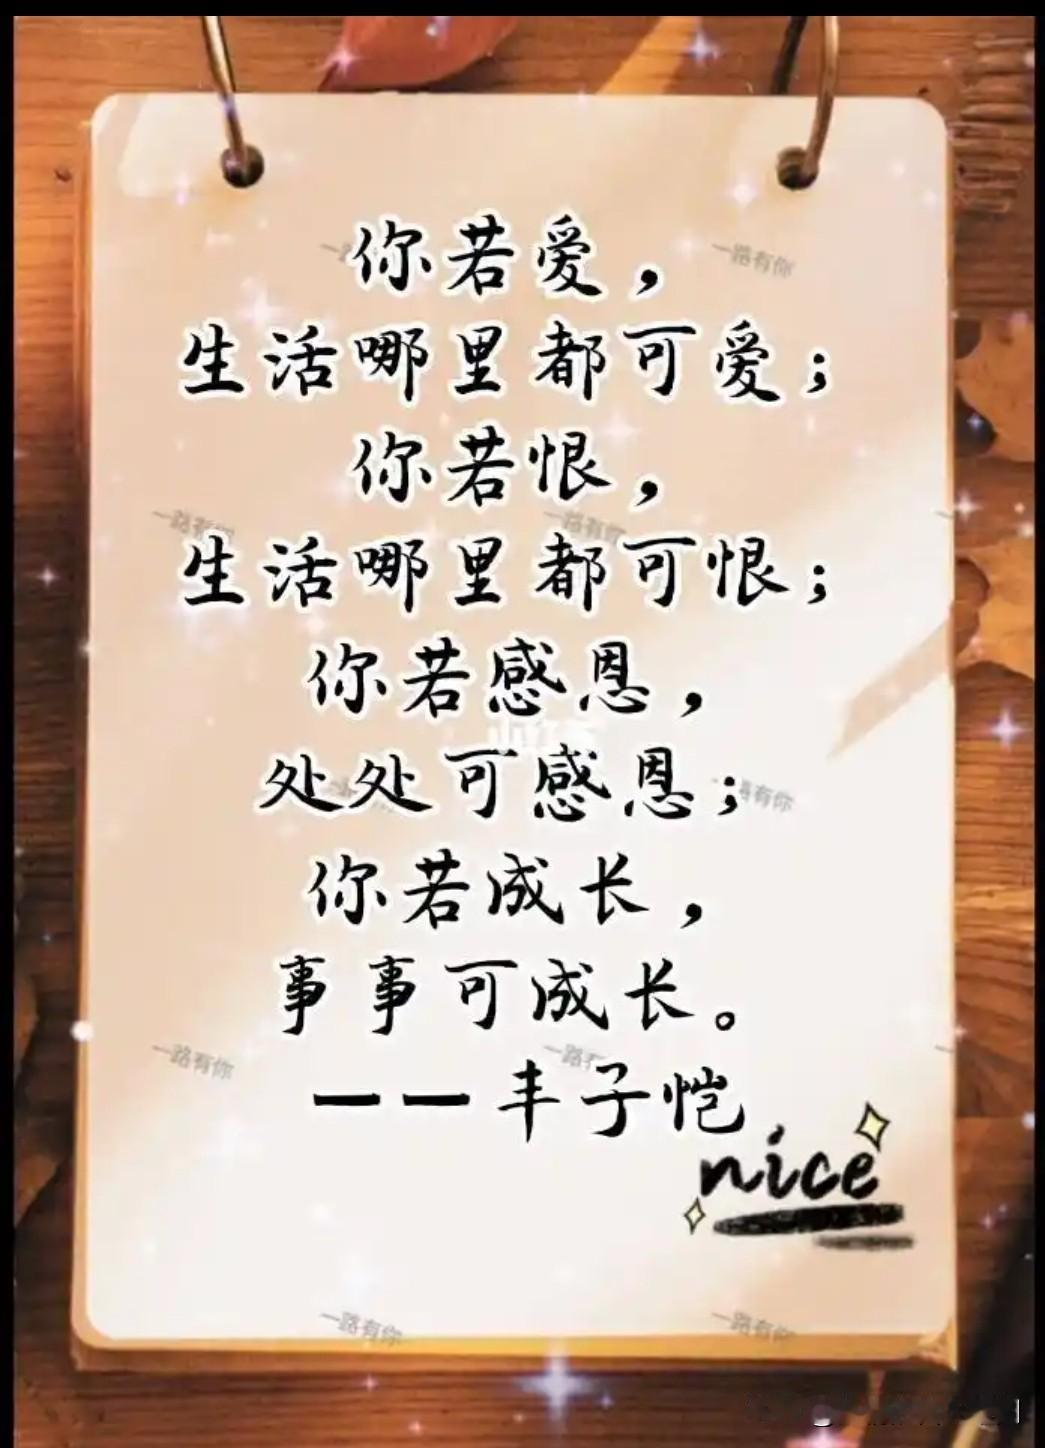 你若爱，
生活哪里都可爱；
你若恨，
生活哪里都可恨；
你若感恩，
处处可感恩；
你若成长，
事事可成长。
——丰子恺
nice
一路有你
一路有你
一路有你
一路有你
一路有你
一路有你